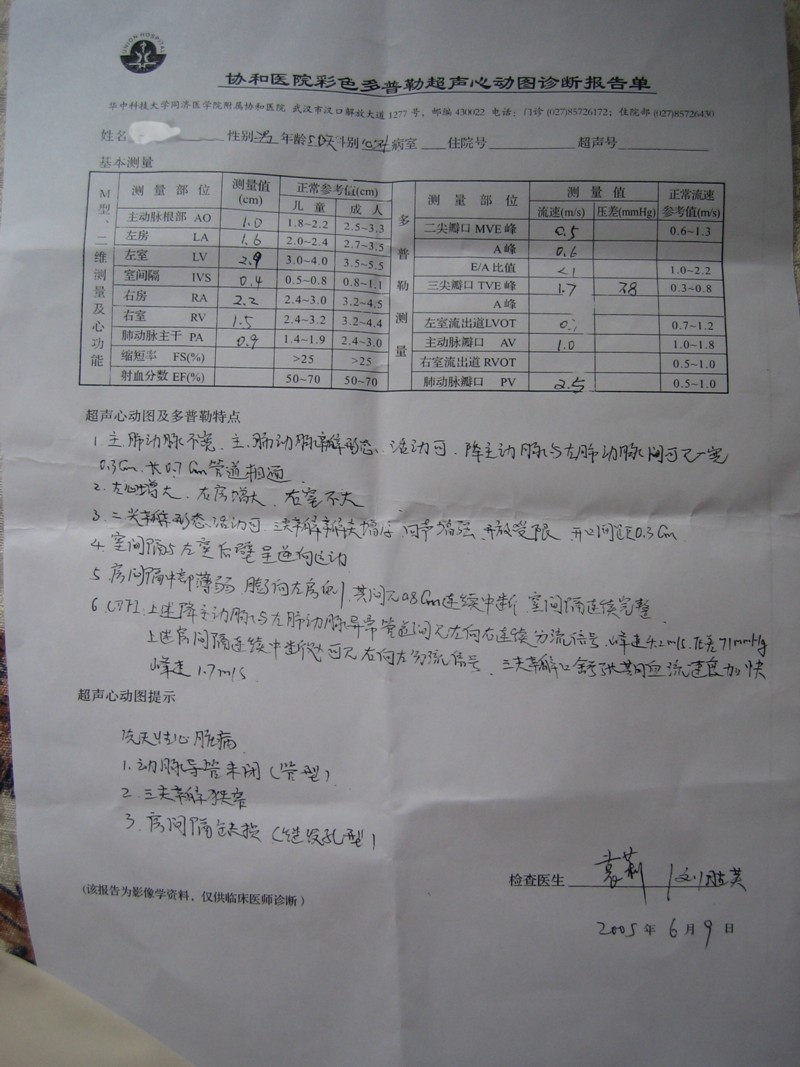 UNION HOSPITAL
协和医院彩色多普勒超声心动图诊断报告单
华中科技大学同济医学院附属协和医院 武汉市汉口解放大道1277号，邮编430022 电话：门诊(027)85726172；住院部(027)85726430
姓名 性别 男 年龄 50天 科别 病室 住院号 超声号
基本测量
M型、二维测量及心功能
测量部位 测量值(cm) 正常参考值(cm) 儿童 成人
主动脉根部 AO 1.0 1.8~2.2 2.5~3.3
左房 LA 1.6 2.0~2.4 2.7~3.5
左室 LV 2.9 3.0~4.0 3.5~5.5
室间隔 IVS 0.4 0.5~0.8 0.8~1.1
右房 RA 2.2 2.4~3.0 3.2~4.5
右室 RV 1.5 2.4~3.2 3.2~4.4
肺动脉主干 PA 0.9 1.4~1.9 2.4~3.0
缩短率 FS(%) >25 >25
射血分数 EF(%) 50~70 50~70
多普勒测量
测量部位 测量值 流速(m/s) 压差(mmHg) 正常流速参考值(m/s)
二尖瓣口 MVE 峰 0.5 0.6~1.3
A 峰 0.6
E/A 比值 <1 1.0~2.2
三尖瓣口 TVE 峰 1.7 38 0.3~0.8
A 峰
左室流出道LVOT 0.7~1.2
主动脉瓣口 AV 1.0 1.0~1.8
右室流出道 RVOT 0.5~1.0
肺动脉瓣口 PV 2.5 0.5~1.0
超声心动图及多普勒特点
1. 主.肺动脉不宽. 主.肺动脉瓣形态、活动可. 降主动脉与左肺动脉间可见一宽
0.3cm. 长0.7cm管道相通
2. 左心增大、右房增大、右室不大
3. 二尖瓣形态、活动可. 三尖瓣瓣尖增厚 回声增强 开放受限 开口间距0.3cm.
4. 室间隔与左室后壁呈逆向运动
5. 房间隔中部薄弱 膨向左房侧 其间见0.8cm连续中断 室间隔连续完整
6. CDFI: 上述降主动脉与左肺动脉异常管道间见左向右连续分流信号. 峰速4.2m/s. 压差71mmHg
上述房间隔连续中断处可见右向左分流信号、三尖瓣口舒张期血流速度加快
峰速1.7m/s
超声心动图提示
先天性心脏病
1. 动脉导管未闭(管型)
2. 三尖瓣狭窄
3. 房间隔缺损(继发孔型)
检查医生
(该报告为影像学资料，仅供临床医师诊断)
2005 年 6 月 9 日